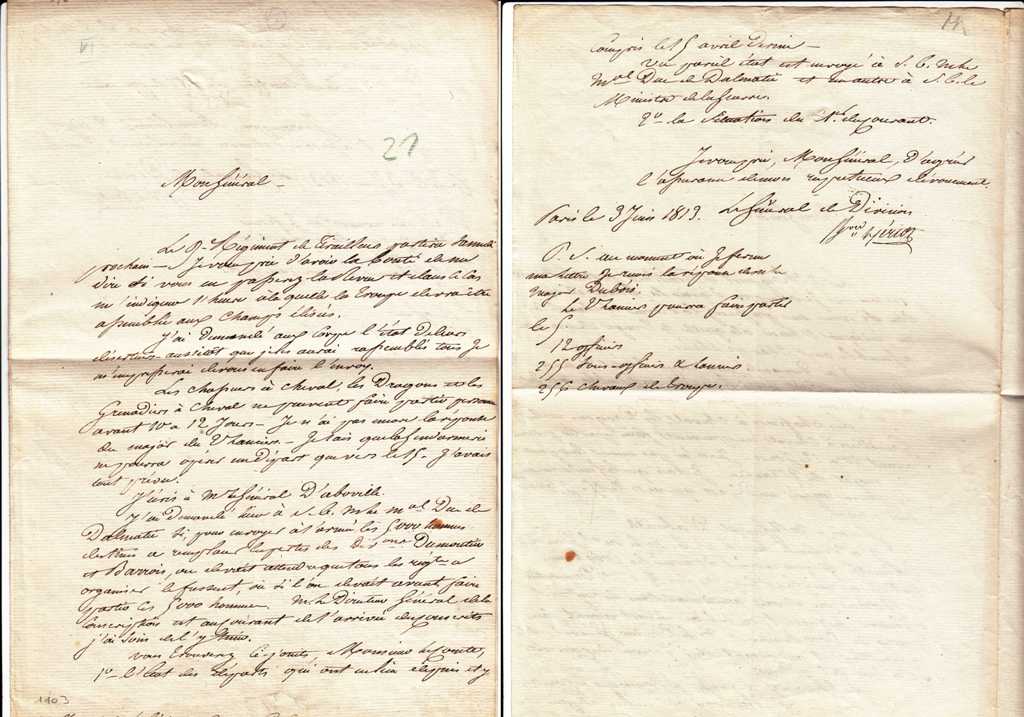 VI
27
Mon Général —
Le 9e Régiment de Tirailleurs partira Samedi
prochain — Je vous prie d'avoir la bonté de me
dire si vous en passerez la revue et dans le cas
m'indiquer l'heure à laquelle la troupe devra être
assemblée aux champs élisés.
J'ai demandé aux corps l'état de leurs
déserteurs — aussitôt que je les aurai rassemblés tous je
m'empresserai de vous en faire l'envoy.
Les chasseurs à cheval, les Dragons et les
Grenadiers à cheval ne peuvent faire partir personne
avant 10 à 12 Jours — Je n'ai pas encore la réponse
du major du 2e lanciers — Je sais que la Gendarmerie
ne pourra opérer un départ que vers le 15 — J'avais
tout prévu.
J'écris à Mr le Général D'aboville.
J'ai demandé hier à S. E. Mr le Mal Duc de
Dalmatie si pour envoyer à l'armée les 5000 hommes
destinés à remplacer les pertes des Dions Dumoustier
et Barrois, on devait attendre que tous les régts à
organiser le fussent, ou si l'on devait avant faire
partir les 5000 hommes. Mr le Directeur Général de la
Conscription est au courant de l'arrivée des conscrits
j'ai soin de l'y tenir.
Vous trouverez ci joints, Monsieur le Comte,
1o — l'état des départs qui ont eu lieu depuis et y
1103
compris le 15 avril dernier —
un pareil état est envoyé à S. E. Mr le
Mal Duc de Dalmatie et un autre à S. E. le
Ministre de la Guerre.
2o — la Situation du 1er du courant.
Je vous prie, Mon Général, d'agréer
l'assurance de mon respectueux dévouement.
Paris le 3 Juin 1813. Le Général de Division
P. S. au moment où Je ferme
ma lettre Je reçois la réponse de Mr le
major Dubois.
Le 2e lanciers pourra faire partir
le 5.
12 officiers
255 Sous-officiers & lanciers
256 chevaux de troupe.